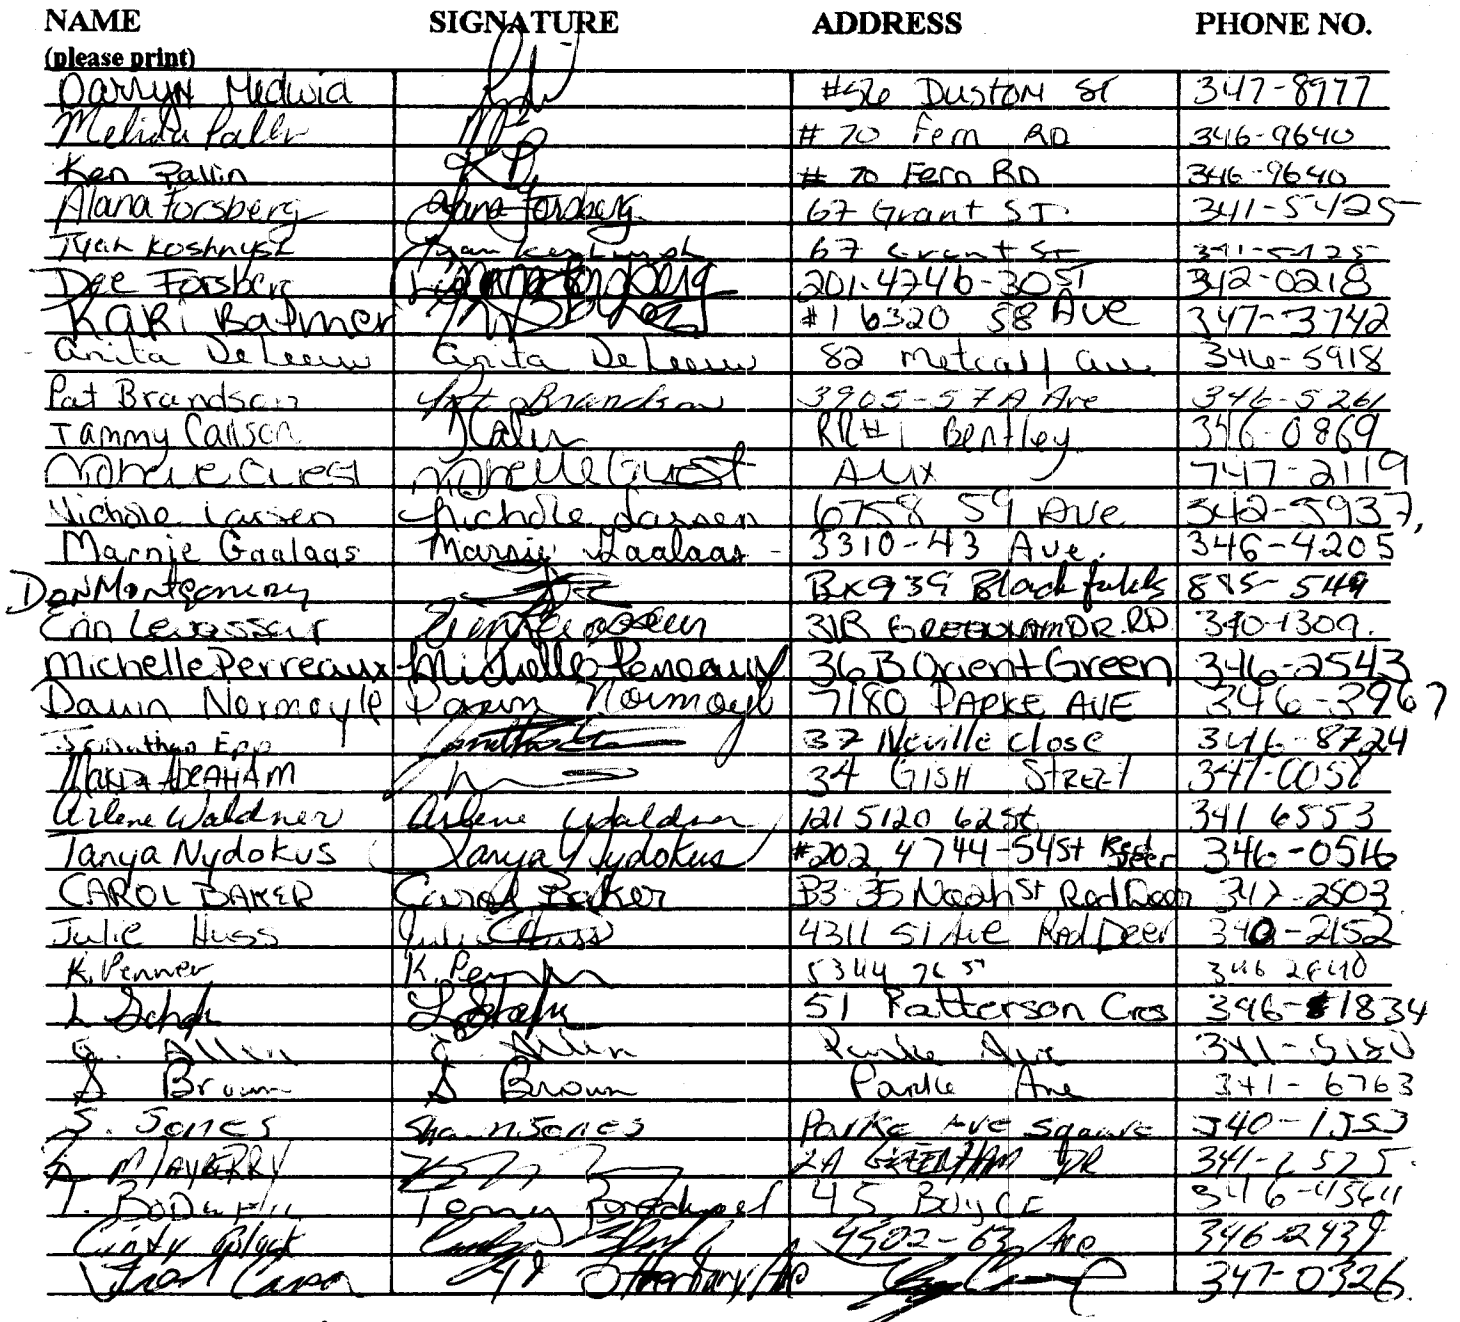 NAME SIGNATURE ADDRESS PHONE NO.
(please print)
Darryn Medwid #56 Duston St 347-8977
Melinda #70 Fern RD 346-9640
Ken Pallin #70 Fern RD 346-9640
Alana Forsberg Alana Forsberg 67 Grant ST. 341-5425
67 Grant St 341-5425
Dee Forsberg 201-4746-30 ST 342-0218
KARi Batmer #1 6320 58 Ave 347-3742
Anita DeLeeuw Anita DeLeeuw 82 Metcalf Av. 346-5918
Pat Brandson Pat Brandson 3905-57A Ave 346-5261
Tammy Carlson RR#1 Bentley 346-0869
Michelle Guest Michelle Guest Alix 747-2119
Nichole Larsen Nichole Larsen 6758 59 Ave 342-5937
Marnie Gaalaas Marnie Gaalaas 3310-43 Ave. 346-4205
Don Montgomery Bx 939 Blackfalds 885-549
Erin Levasseur 31B GREENHAM DR. RD. 340-1309.
Michelle Perreaux Michelle Perreaux 36B Orient Green 346-2543
Dawn Normoyle Dawn Normoyle 7180 PARKE AVE 346-3967
Jonathan Epp 37 Neville Close 346-8724
ABRAHAM 34 GISH STREET 347-0058
Arlene Waldner Arlene Waldner 121 5120 62 St 341 6553
Tanya Nydokus Tanya Nydokus #202, 4744-54 St Red Deer 346-0516
CAROL BAKER Carol Baker B3 35 Noah St Red Deer 347-2503
Julie Huss Julie Huss 4311 51 Ave Red Deer 340-2152
K. Penner K. Penner 5344 76 st 346 2640
L 51 Patterson Cres 346-1834
Allen Allen Parke Ave 341-5180
S Brown S Brown Parke Ave 341-6763
S. Jones Shawn Jones Parke Ave Square 340-1353
MAYBERRY 2A GREENHAM DR
T. 45 BOYCE
Cindy 4502-63 Ave 346-2439
47 Otterbury Ave 347-0326.